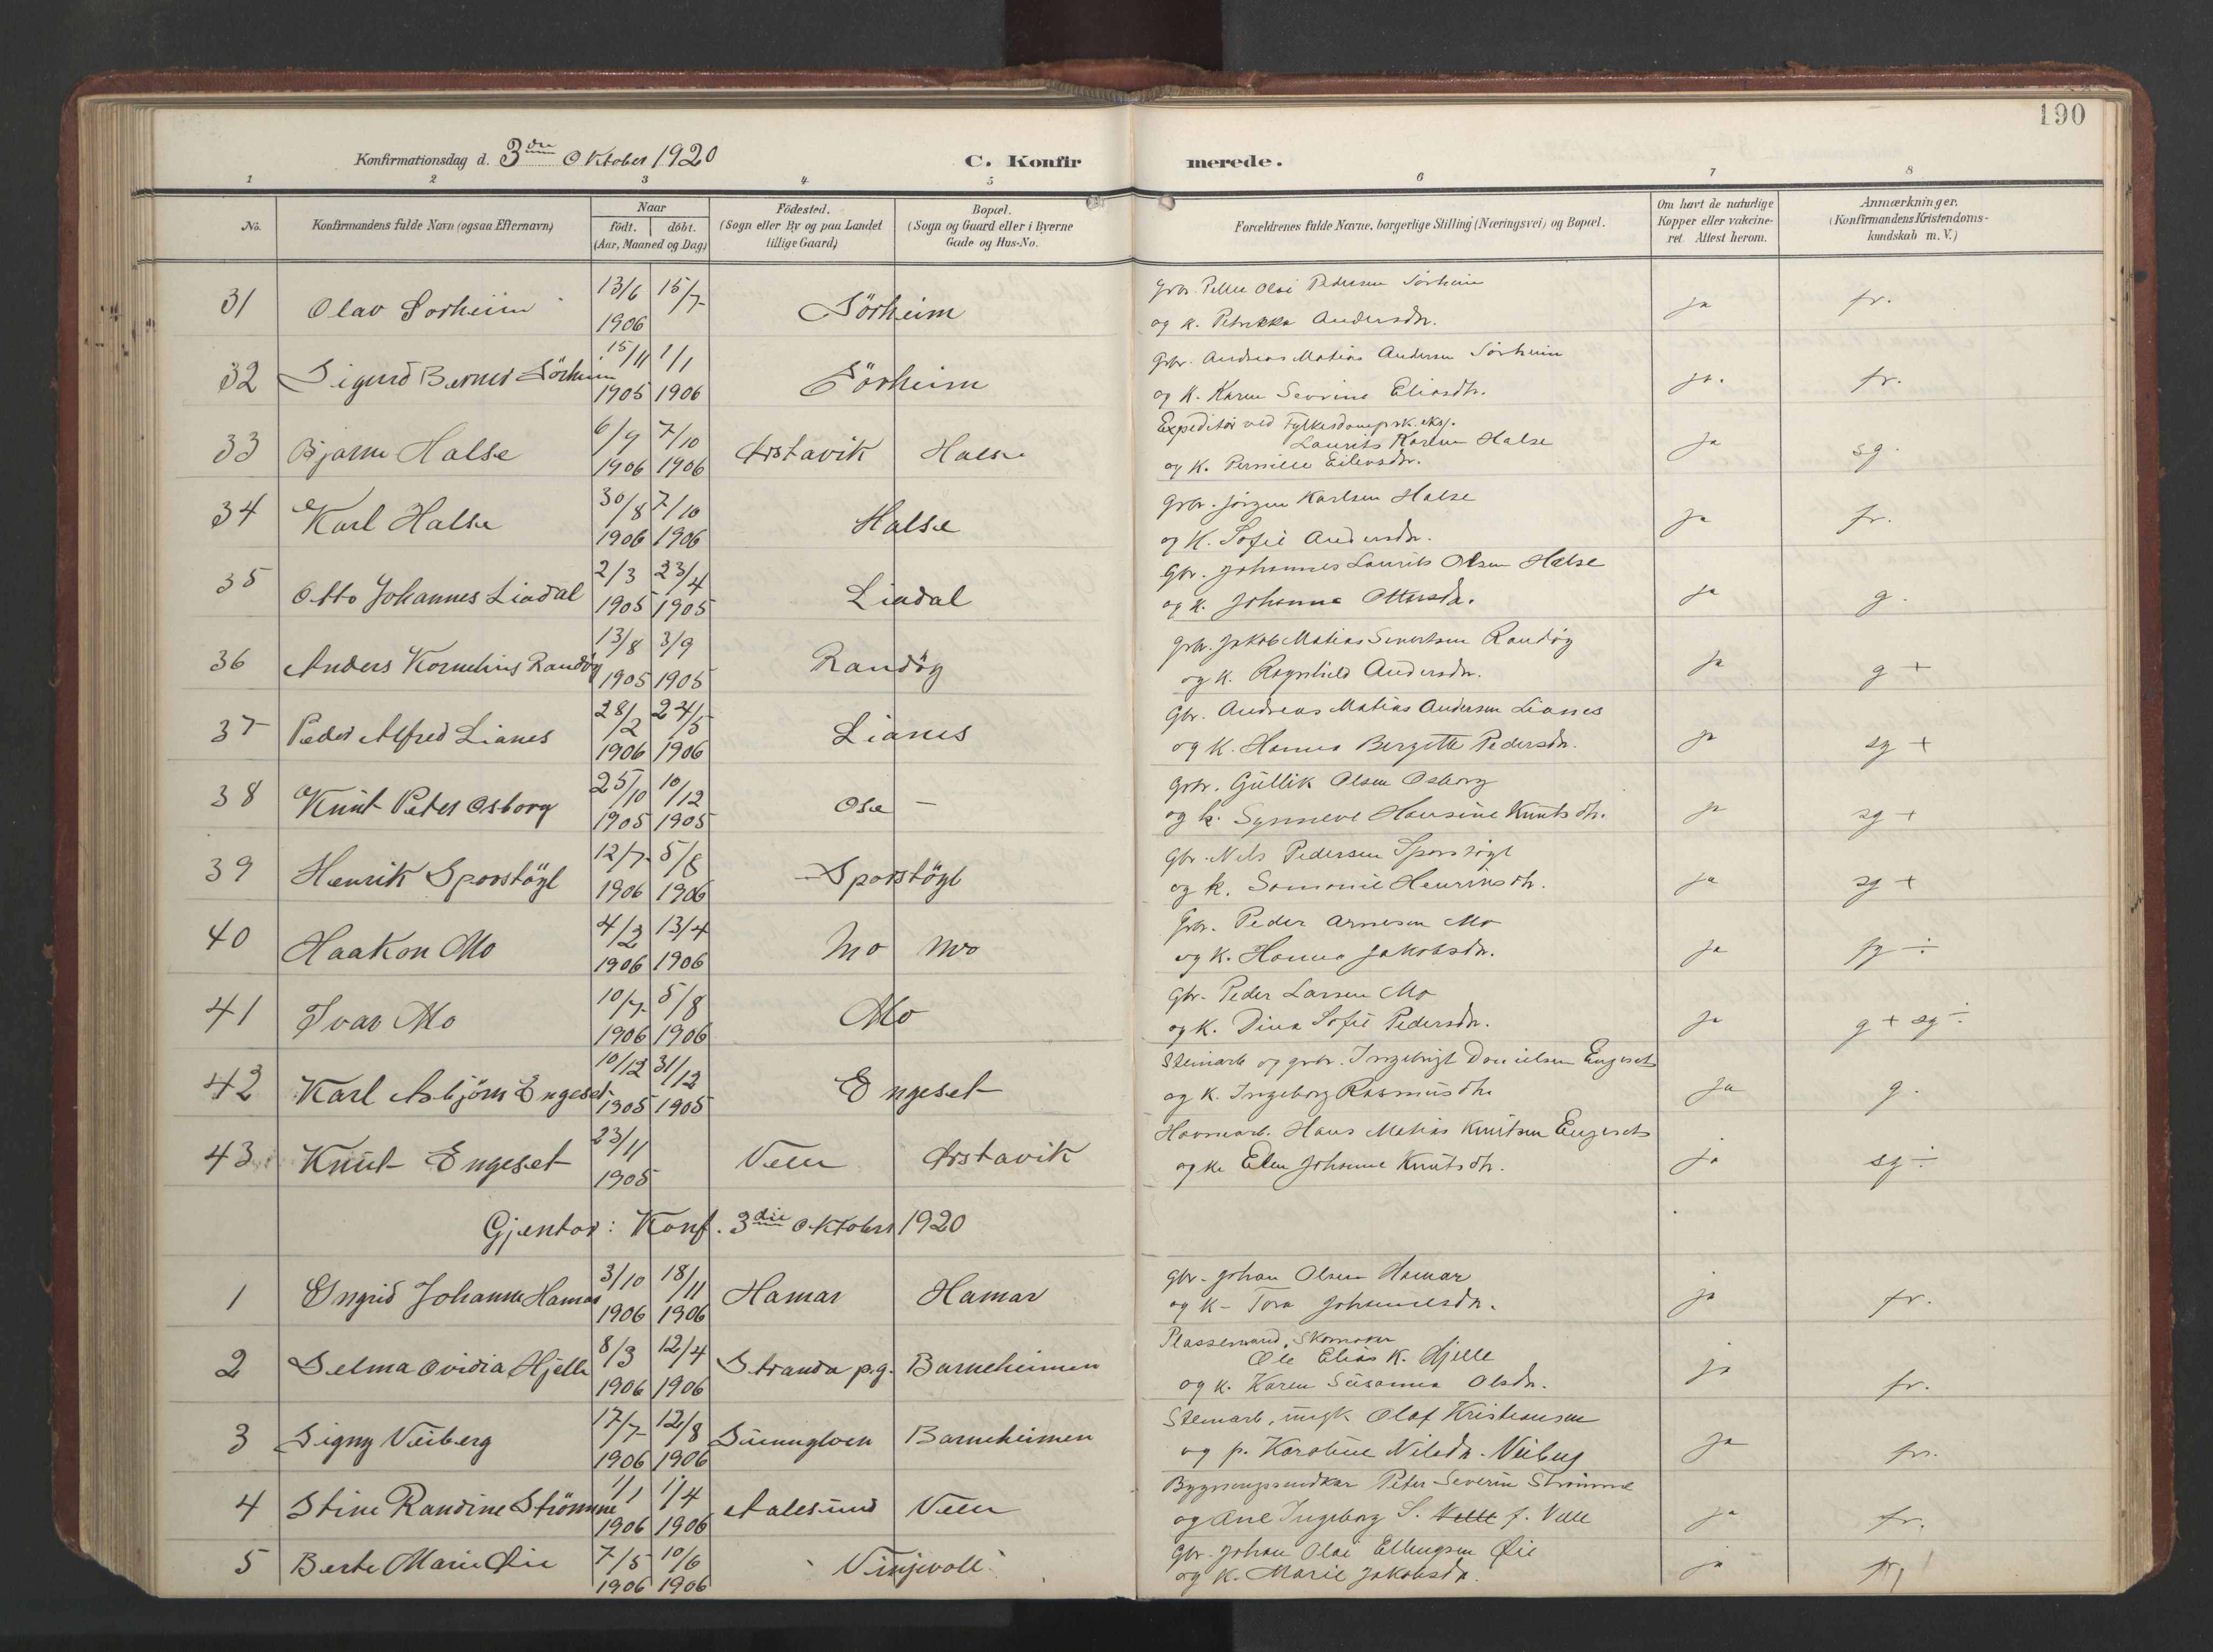 190
Konfirmationsdag d. 3die Oktober 1920 C. Konfirmerede.
1 2 3 4 5 6 7 8
No. Konfirmandens fulde Navn (ogsaa Efternavn) Naar födt. döbt. (Aar, Maaned og Dag) Födested. (Sogn eller By og paa Landet tillige Gaard) Bopæl. (Sogn og Gaard eller i Byerne Gade og Hus-No. Forældrenes fulde Navne, borgerlige Stilling (Næringsvei) og Bopæl. Om havt de naturlige Kopper eller vakcineret. Attest herom. Anmærkninger. (Konfirmandens Kristendomskundskab m. V.)
31 Olav Sorheim 13/6 1906 15/7 Sörheim Grbr. Olai Pedersen Sörheim og k. Petrikka Andersdtr. ja fr.
32 Sigurd Berner Sörheim 15/11 1905 1/1 1906 Sörheim Gbr. Andreas Matias Andersen Sörheim og K. Karen Severine Eliasdtr. ja. fr.
33 Bjarne Halse 6/9 1906 7/10 1906 Årstavik Halse Expeditör ved Fylkesdampsk. eksp. Laurits Karlsen Halse og K. Pernille Eilertsdtr. ja sg.
34 Karl Halse 30/8 1906 7/10 1906 Halse Grbr. Jörgen Karlsen Halse og K. Sofie Andersdtr. ja fr.
35 Otto Johannes Lindal 2/3 1905 23/4 1905 Lindal Gbr. Johannes Laurits Olsen Halse og K. Johanne Ottersdr. ja g.
36 Anders Kornelius Randöy 13/8 1905 3/9 1905 Randöy grbr. Jakob Matias Sivertsen Randöy og K. Ragnhild Andersdtr. ja g +
37 Peder Alfred Lianes 28/2 1906 24/5 1906 Lianes Gbr. Andreas Matias Andersen Lianes og K. Hanna Bergitte Pedersdtr. ja sg +
38 Knut Peter Osborg 25/10 1905 10/12 1905 Ose — Grbr. Gullik Olsen Osborg og k. Synneve Hansine Knutsdtr. ja sg +
39 Henrik Sporstöyl 12/7 1906 5/8 1906 Sporstöyl Gbr. Nels Pedersen Sporstöyl og k. Samonie Henriksdtr. ja sg +
40 Haakon Mo 4/2 1906 13/4 1906 Mo Mo Gbr. Peder Arnesen Mo og K. Hanna Jakobsdtr. ja sg ÷
41 Ivar Mo 10/7 1906 5/8 1906 Mo Gbr. Peder Larsen Mo og K. Dina Sofie Pedersdtr. ja g + sg ÷
42 Karl Asbjörn Engeset 10/12 1905 31/12 1905 Engeset Steinarb og grbr. Ingebrigt Danielsen Engeset og K. Ingeborg Rasmusdtr ja g.
43 Knut Engeset 23/11 1905 Velle Årstavik Havnearb. Hans Matias Knutsen Engeset og k. Elen Johanne Knutsdtr. ja sg ÷
Gjentor: Konf. 3die Oktober 1920
1 Ingrid Johanne Hamar 3/10 1906 18/11 1906 Hamar Hamar Gbr. Johan Olsen Hamar og K. Tora Johannesdtr. ja fr.
2 Selma Ovidia Hjelle 8/3 1906 12/4 1906 Stranda p.g. Barneheimen Plassemand, Skomaker Ole Elias K. Hjelle og K. Karen Susanna Olsdtr. ja fr.
3 Signy Veiberg 17/7 1906 12/8 1906 Barneheimen Steinarb, ungk Olaf Kristiansen og p. Karoline Nilsdtr. Veiberg ja fr.
4 Stine Randine Strömme 1/1 1906 1/4 1906 Aalesund Velle Bygningssnedkar Peter Severin Strömme og Ane Ingeborg S. Velle f. Velle ja fr.
5 Berte Marie Øie 7/5 1906 10/6 1906 Vinjevoll Gbr. Johan Olai Ellingsen Øie og K. Marie Jakobsdtr. ja